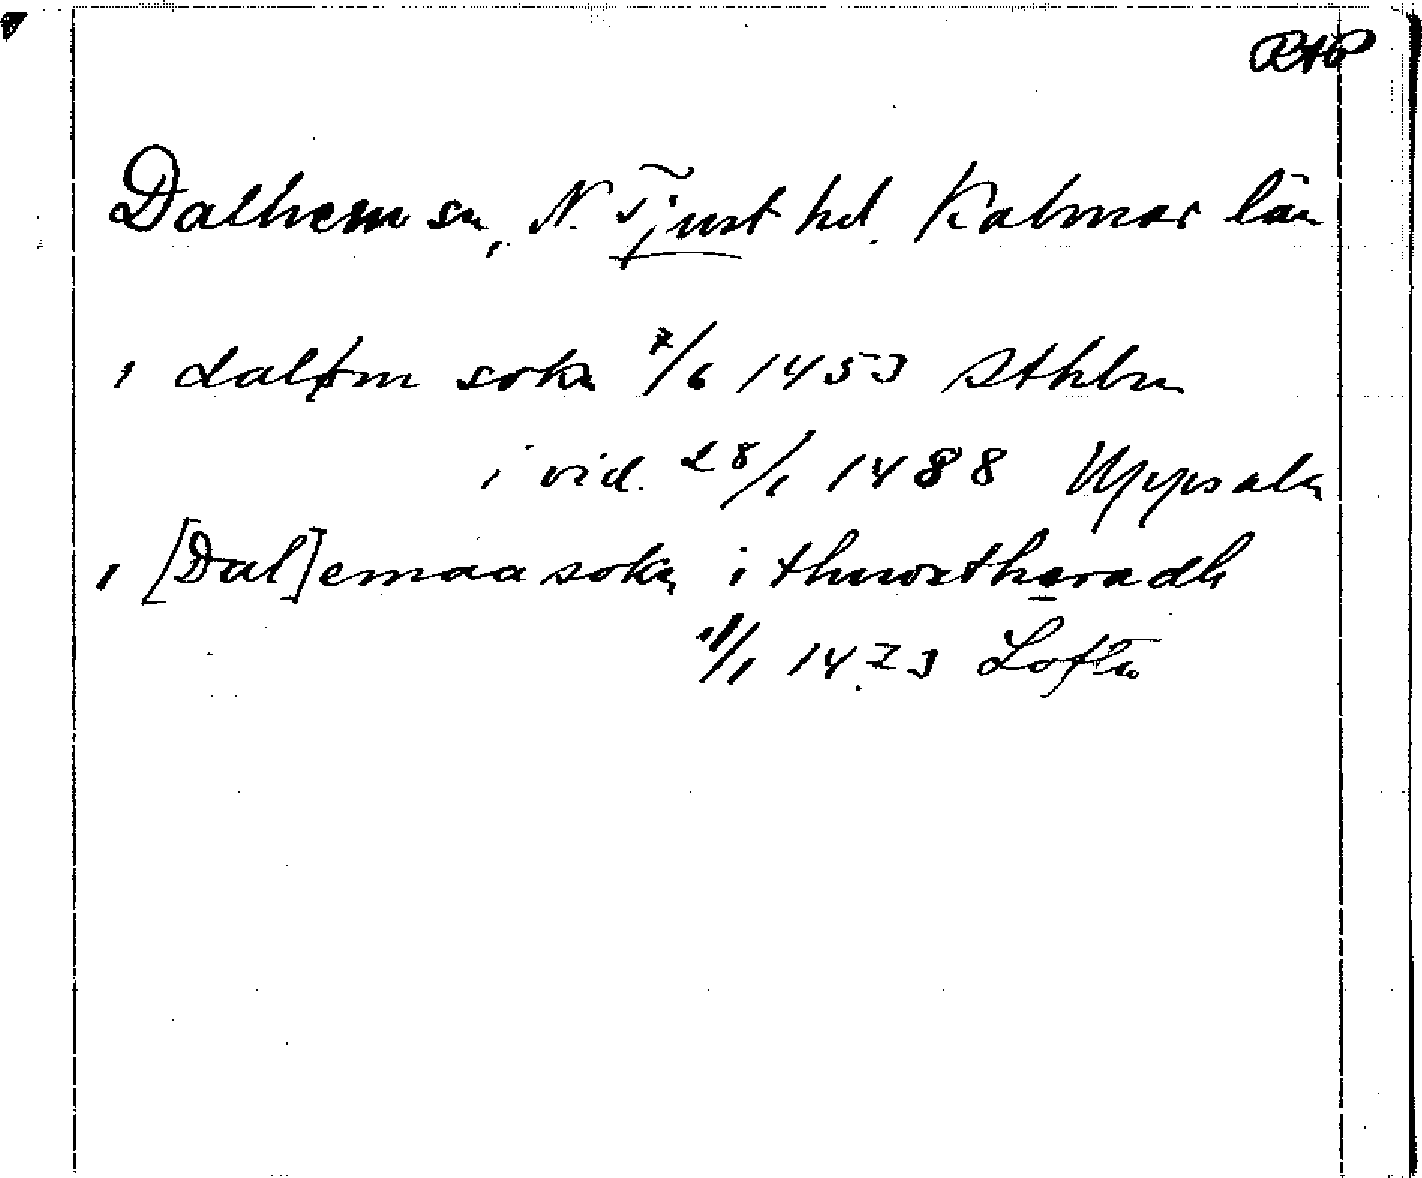 RAP
Dalhem sn, N. Tjust hd. Kalmar län
i daløm sokn 7/6 1453 Sthlm
i vid. 28/1 1488 Uppsala
i [Dal]emaa sokn i thwsthæradh
11/1 1473 Lofta